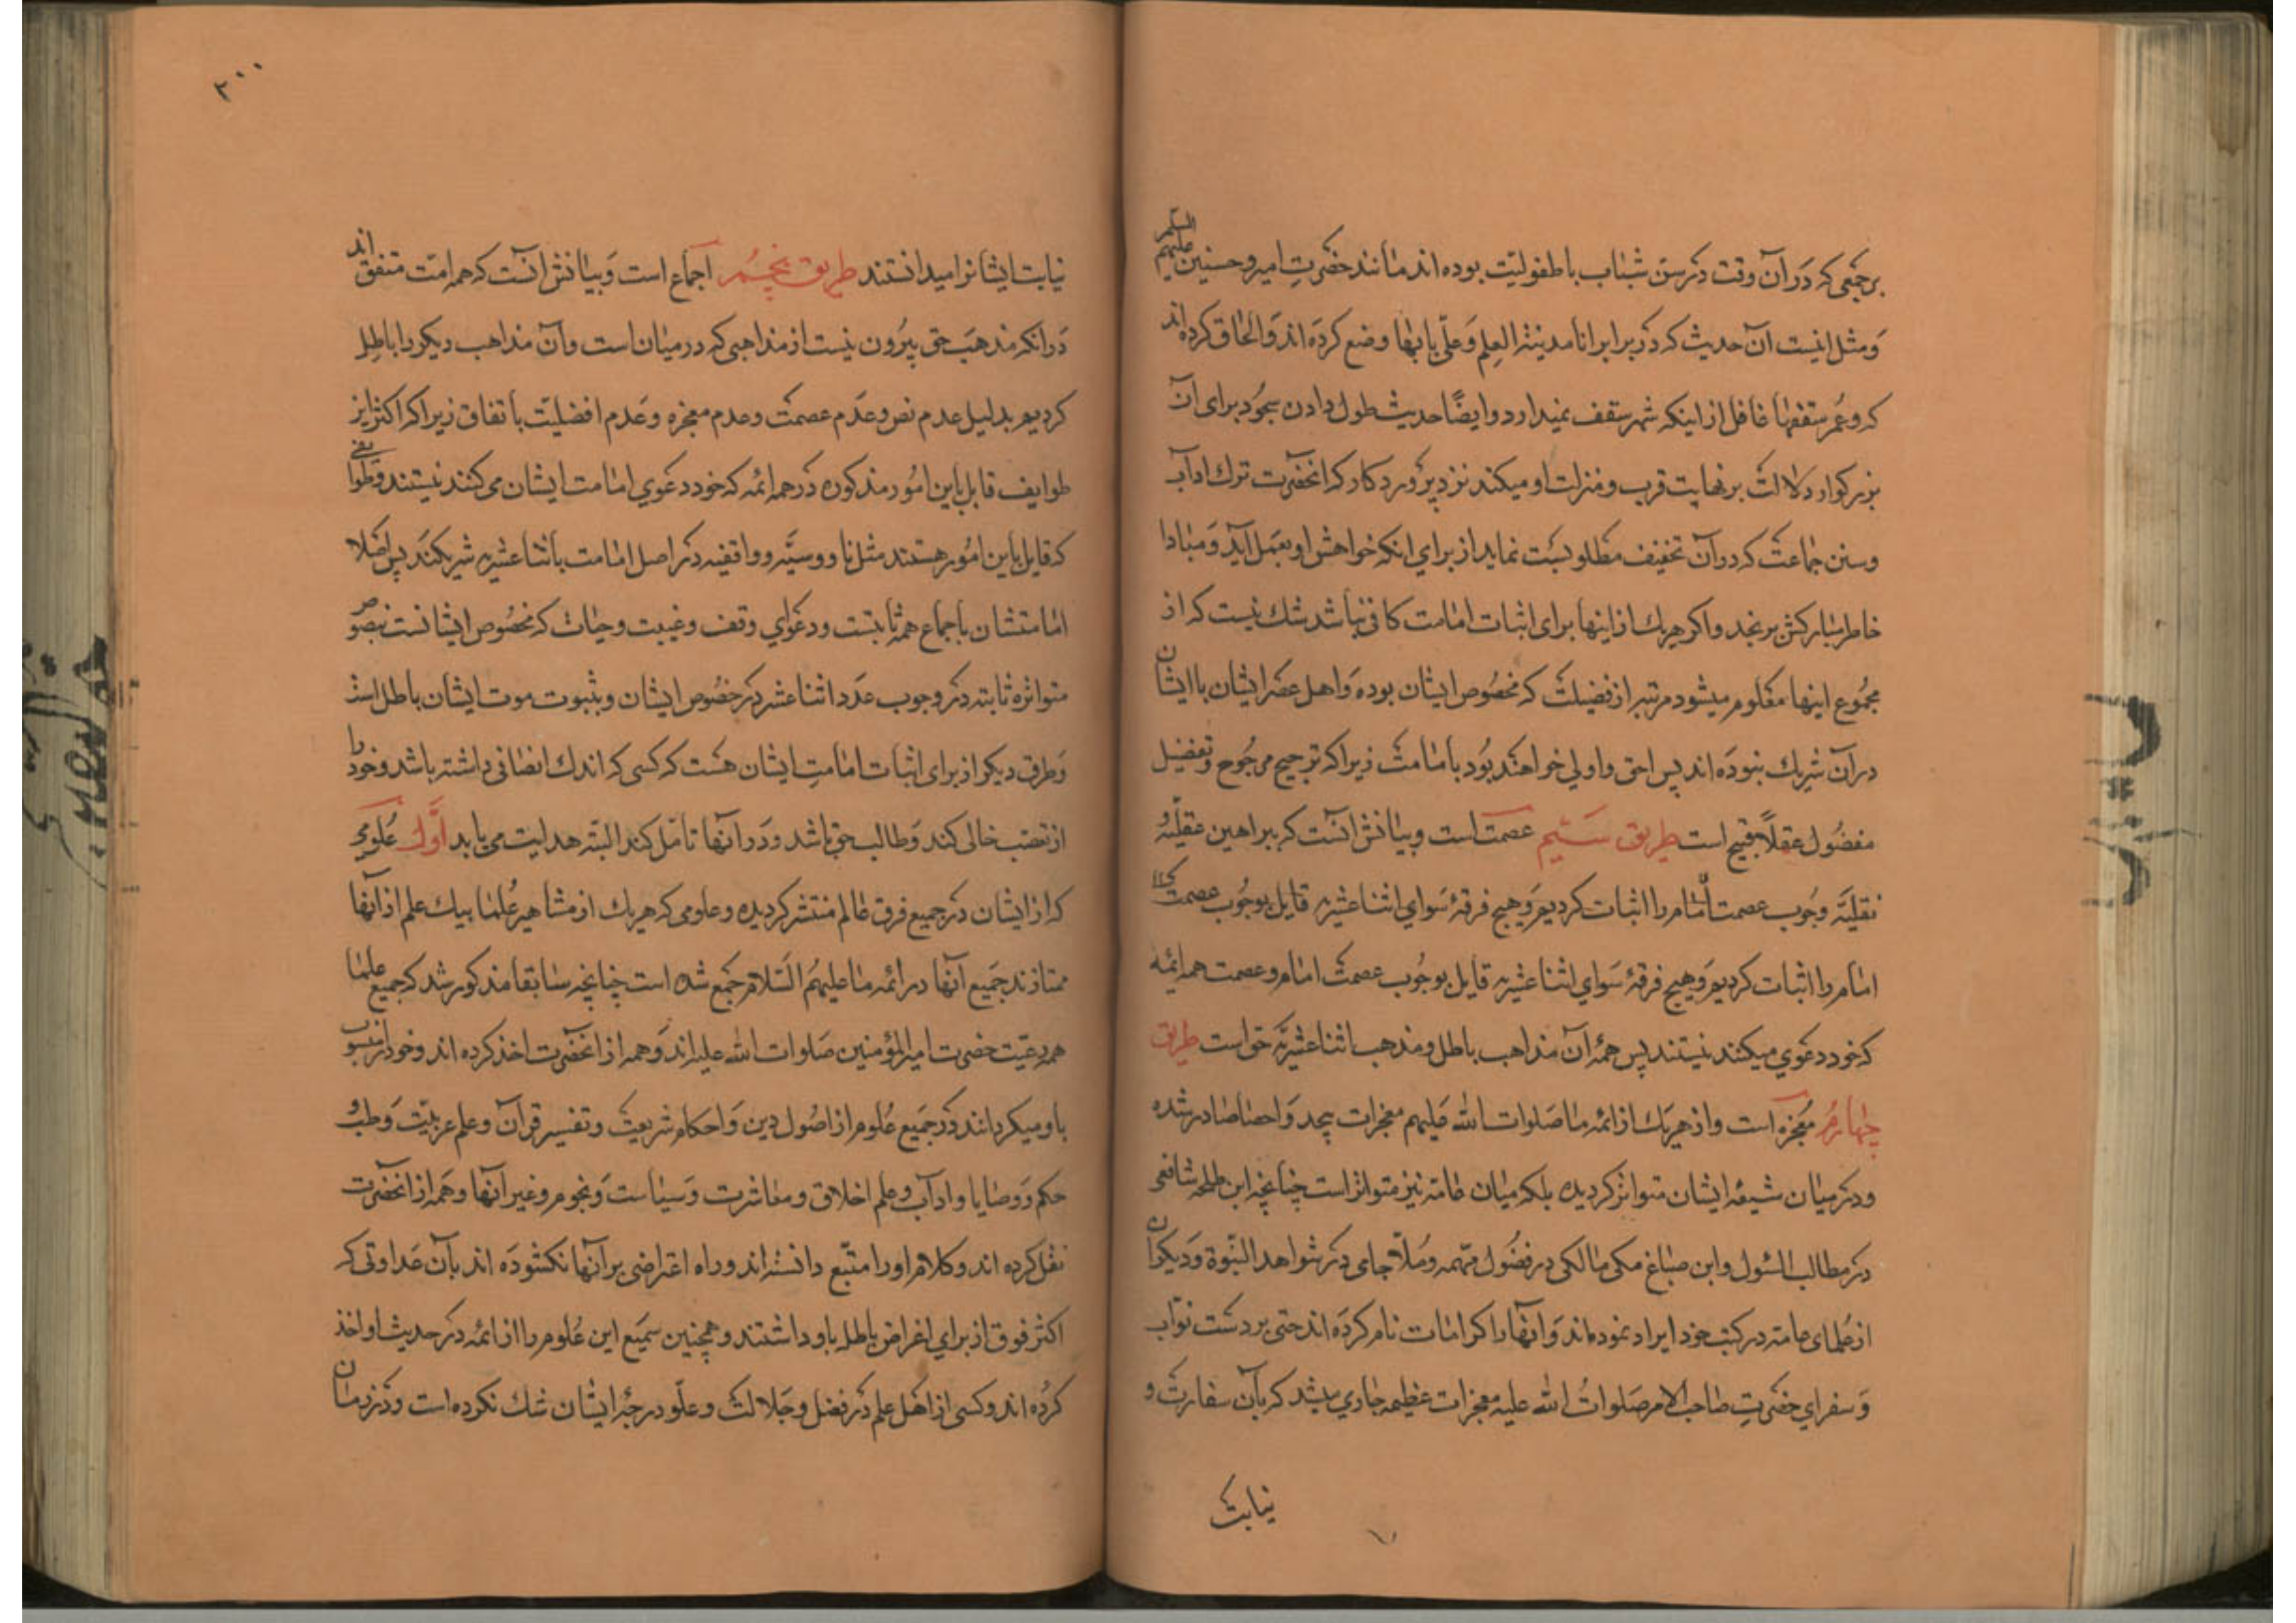 بر جمعی که در آن وقت در سن شباب یا طفولیت بوده اند مانند حضرت امیر و حسنین علیهم السلام
و مثل اینست آن حدیث که در برابر انا مدینة العلم و علی بابها وضع کرده اند و الحاق کرده اند
که و عمر سقفها غافل از اینکه شهر سقف نمیدارد و ایضا حدیث طول دادن سجود برای آن
بزرکوار دلالت بر نهایت قرب و منزلت او میکند نزد پروردکار که انحضرت ترك اداب
و سنن جماعت که در آن تخفیف مطلوبست نماید از برای انکه خواهش او بعمل آید و مبادا
خاطر مبارکش برنجد و اکر هریك از اینها برای اثبات امامت کافی نباشد شك نیست که از
مجموع اینها معلوم میشود مرتبه از فضیلت که مخصوص ایشان بوده و اهل عصر ایشان با ایشان
در آن شریك نبوده اند پس احق و اولی خواهند بود بامامت زیرا که ترجیح مرجوح و تفضیل
مفضول عقلا قبیح است طریق سیم عصمت است و بیانش انست که ببراهین عقلیه و
نقلیه وجوب عصمت امام را اثبات کردیم و هیچ فرقۀ سوای اثنا عشریه قایل بوجوب عصمت
امام را اثبات کردیم و هیچ فرقۀ سوای اثنا عشریه قایل بوجوب عصمت امام و عصمت همه ائمه
که خود دعوی میکنند نیستند پس همۀ آن مذاهب باطل و مذهب اثنا عشریه حق است طریق
چهارم معجزه است و از هریك از ائمه ما صلوات الله علیهم معجزات بیحد و احصا صادر شده
و در میان شیعه ایشان متواتر کردیده بلکه میان عامه نیز متواتر است چنانچه ابن طلحه شافعی
در مطالب السئول و ابن صباغ مکی مالکی در فصول مهمه و ملا جامی در شواهد النبوة و دیکران
از علمای عامه در کتب خود ایراد نموده اند و انها را کرامات نام کرده اند حتی بر دست نواب
و سفرای حضرت صاحب الامر صلوات الله علیه معجزات عظیمه جاری میشد که بآن سفارت و
نیابت
۲۰۰
نیابت ایشانرا میدانستند طریق پنجم اجماع است و بیانش انست که همه امت متفق اند
در انکه مذهب حق بیرون نیست از مذاهبی که در میان است و آن مذاهب دیکر را باطل
کردیم بدلیل عدم نص و عدم عصمت و عدم معجزه و عدم افضلیت باتفاق زیرا که اکثر این
طوایف قایل باین امور مذکوره در همه ائمه که خود دعوی امامت ایشان می کنند نیستند و طوایفی
که قایل باین امور هستند مثل ناووسیه و واقفیه در اصل امامت با اثنا عشریه شریکند پس اصلا
امامتشان باجماع همه ثابتست و دعوای وقف و غیبت و حیات که مخصوص ایشانست بنصوص
متواتره ثابته در وجوب عدد اثنا عشر در خصوص ایشان و بثبوت موت ایشان باطل است
و طرق دیکر از برای اثبات امامت ایشان هست که کسی که اندك انصافی داشته باشد و خود را
از تعصب خالی کند و طالب حق باشد و در آنها تامل کند البته هدایت می یابد اول علومی
که از ایشان در جمیع فرق عالم منتشر کردیده و علومی که هریك از مشاهیر علما بیك علم از آنها
ممتازند جمیع آنها در ائمه ما علیهم السلام جمع شده است چنانچه سابقا مذکور شد که جمیع علما
همه رعیت حضرت امیر المؤمنین صلوات الله علیه اند و همه از انحضرت اخذ کرده اند و خود را منسوب
باو میکردانند در جمیع علوم از اصول دین و احکام شریعت و تفسیر قرآن و علم عربیت و طب و
حکم و وصایا و اداب و علم اخلاق و معاشرت و سیاست و نجوم و غیر آنها و همه از انحضرت
نقل کرده اند و کلام او را متبع دانسته اند و راه اعتراضی بر آنها نکشوده اند بآن عداوتی که
اکثر فرق از برای اغراض باطله باو داشتند و همچنین جمیع این علوم را از ائمه در حدیث او اخذ
کرده اند و کسی از اهل علم در فضل و جلالت و علو درجه ایشان شك نکرده است و در زمان